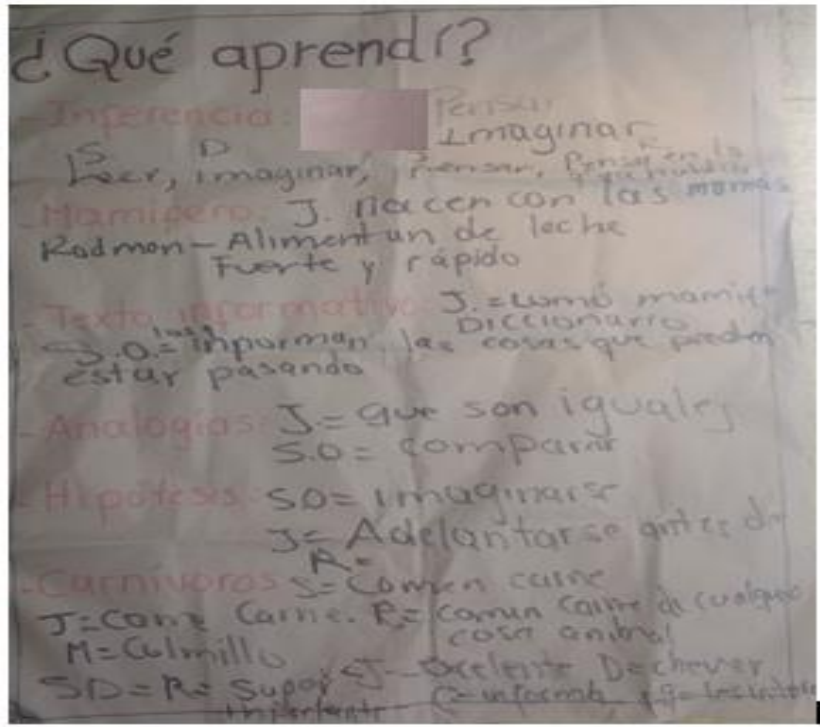 ¿Qué aprendí?
- Inferencia: Pensar
Imaginar
S D R
Leer, imaginar, Pensar, Pensar en lo
- Mamífero: J. nacen con las mamás
Radmon - Alimentan de leche
Fuerte y rápido
- Texto informativo J. = como
Diccionario
S.O. = inporman las cosas que pueden
estar pasando
- Analogías: J = que son iguales
S.O = comparar
- Hipótesis: SO = imaginarse
J = Adelantarse antes de
R =
- Carnívoros S = Comen carne
J = Come Carne. R = comen carne de cualquier
cosa animal
M = Colmillo
SD = R = Super J - excelente D = chever